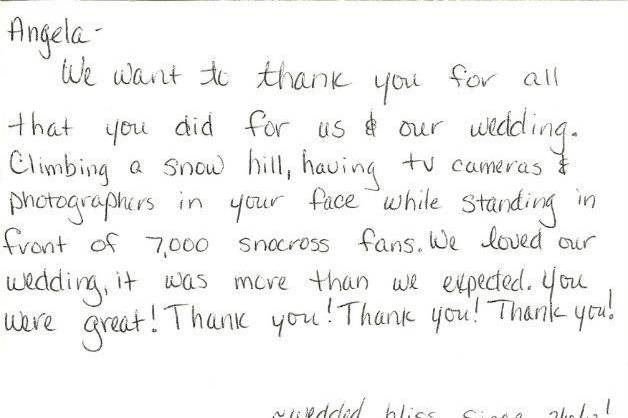 Angela-
We want to thank you for all
that you did for us & our wedding.
Climbing a snow hill, having tv cameras &
photographers in your face while standing in
front of 7,000 snocross fans. We loved our
wedding, it was more than we expected. You
were great! Thank you! Thank you! Thank you!
~wedded bliss since